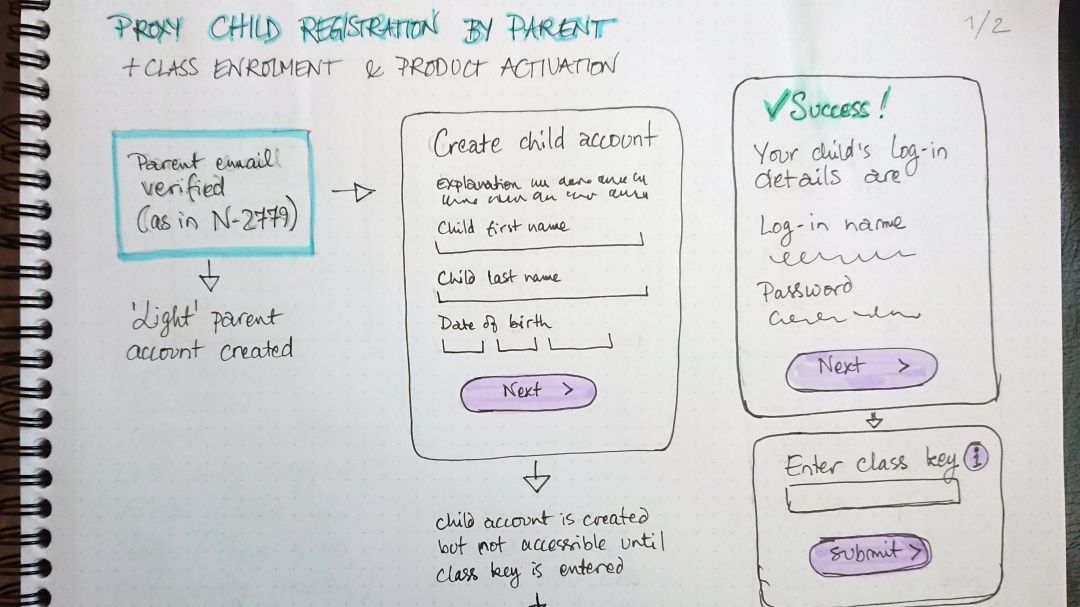 PROXY CHILD REGISTRATION BY PARENT
1/2
+ CLASS ENROLMENT & PRODUCT ACTIVATION
Parent email
verified
(as in N-2779)
'Light' parent
account created
Create child account
Explanation
Child first name
Child last name
Date of birth
Next >
child account is created
but not accessible until
class key is entered
✓ Success!
Your child's Log-in
details are
Log-in name
Password
Next >
Enter class key i
Submit >